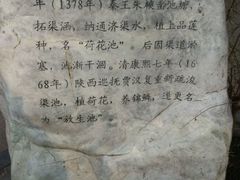 年（1378年）秦王朱樉凿池塘，
拓渠涵，纳通济渠水，植上品莲
种，名“荷花池”。后因渠道淤
塞，池渐干涸。清康熙七年（16
68年）陕西巡抚贾汉复重新疏浚
渠池，植荷花，养锦鳞，遂更名
为“放生池”。